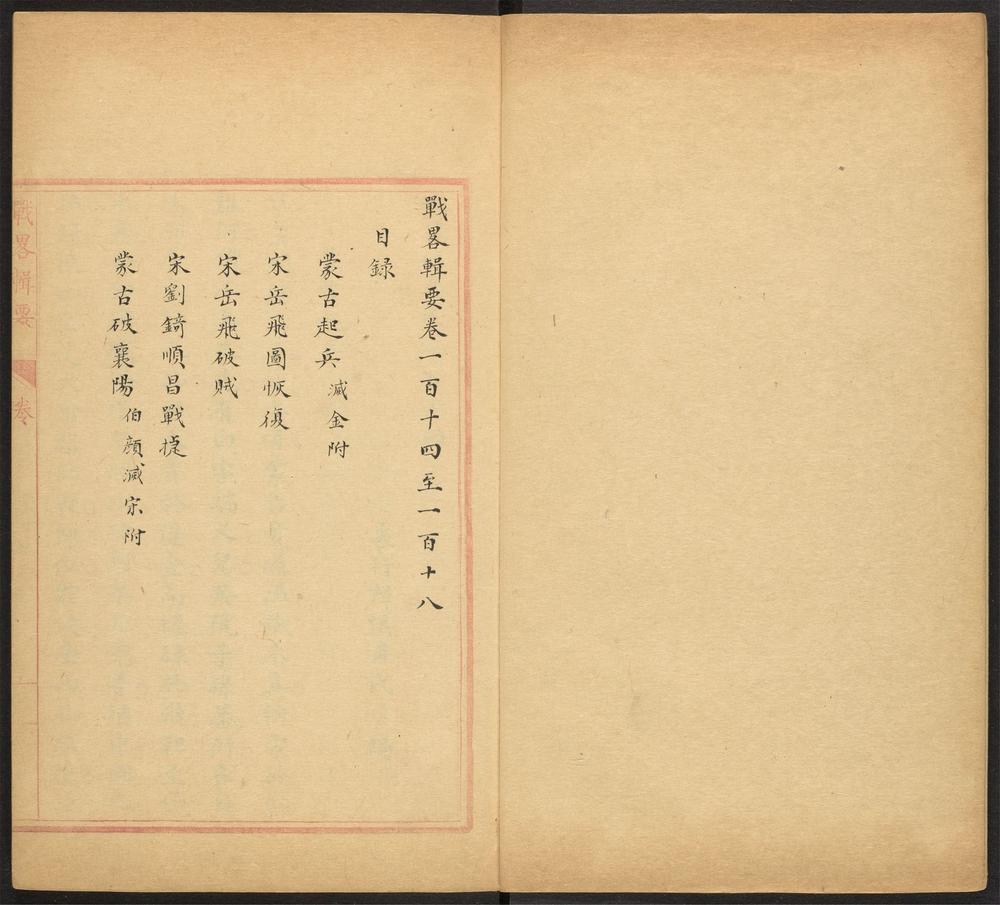 戰畧輯要卷一百十四至一百十八
目録
蒙古起兵 滅金附
宋岳飛圖恢復
宋岳飛破賊
宋劉錡順昌戰捷
蒙古破襄陽 伯顏滅宋附
戰畧輯要 卷